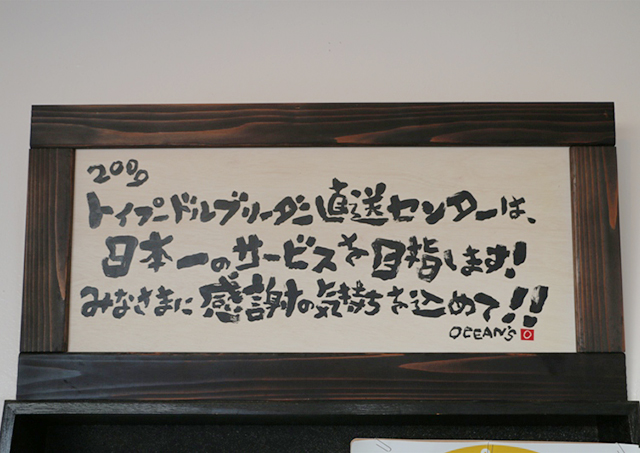 2009
トイプードルブリーダー直送センターは、
日本一のサービスを目指します!
みなさまに感謝の気持ちを込めて!!
OCEAN'S